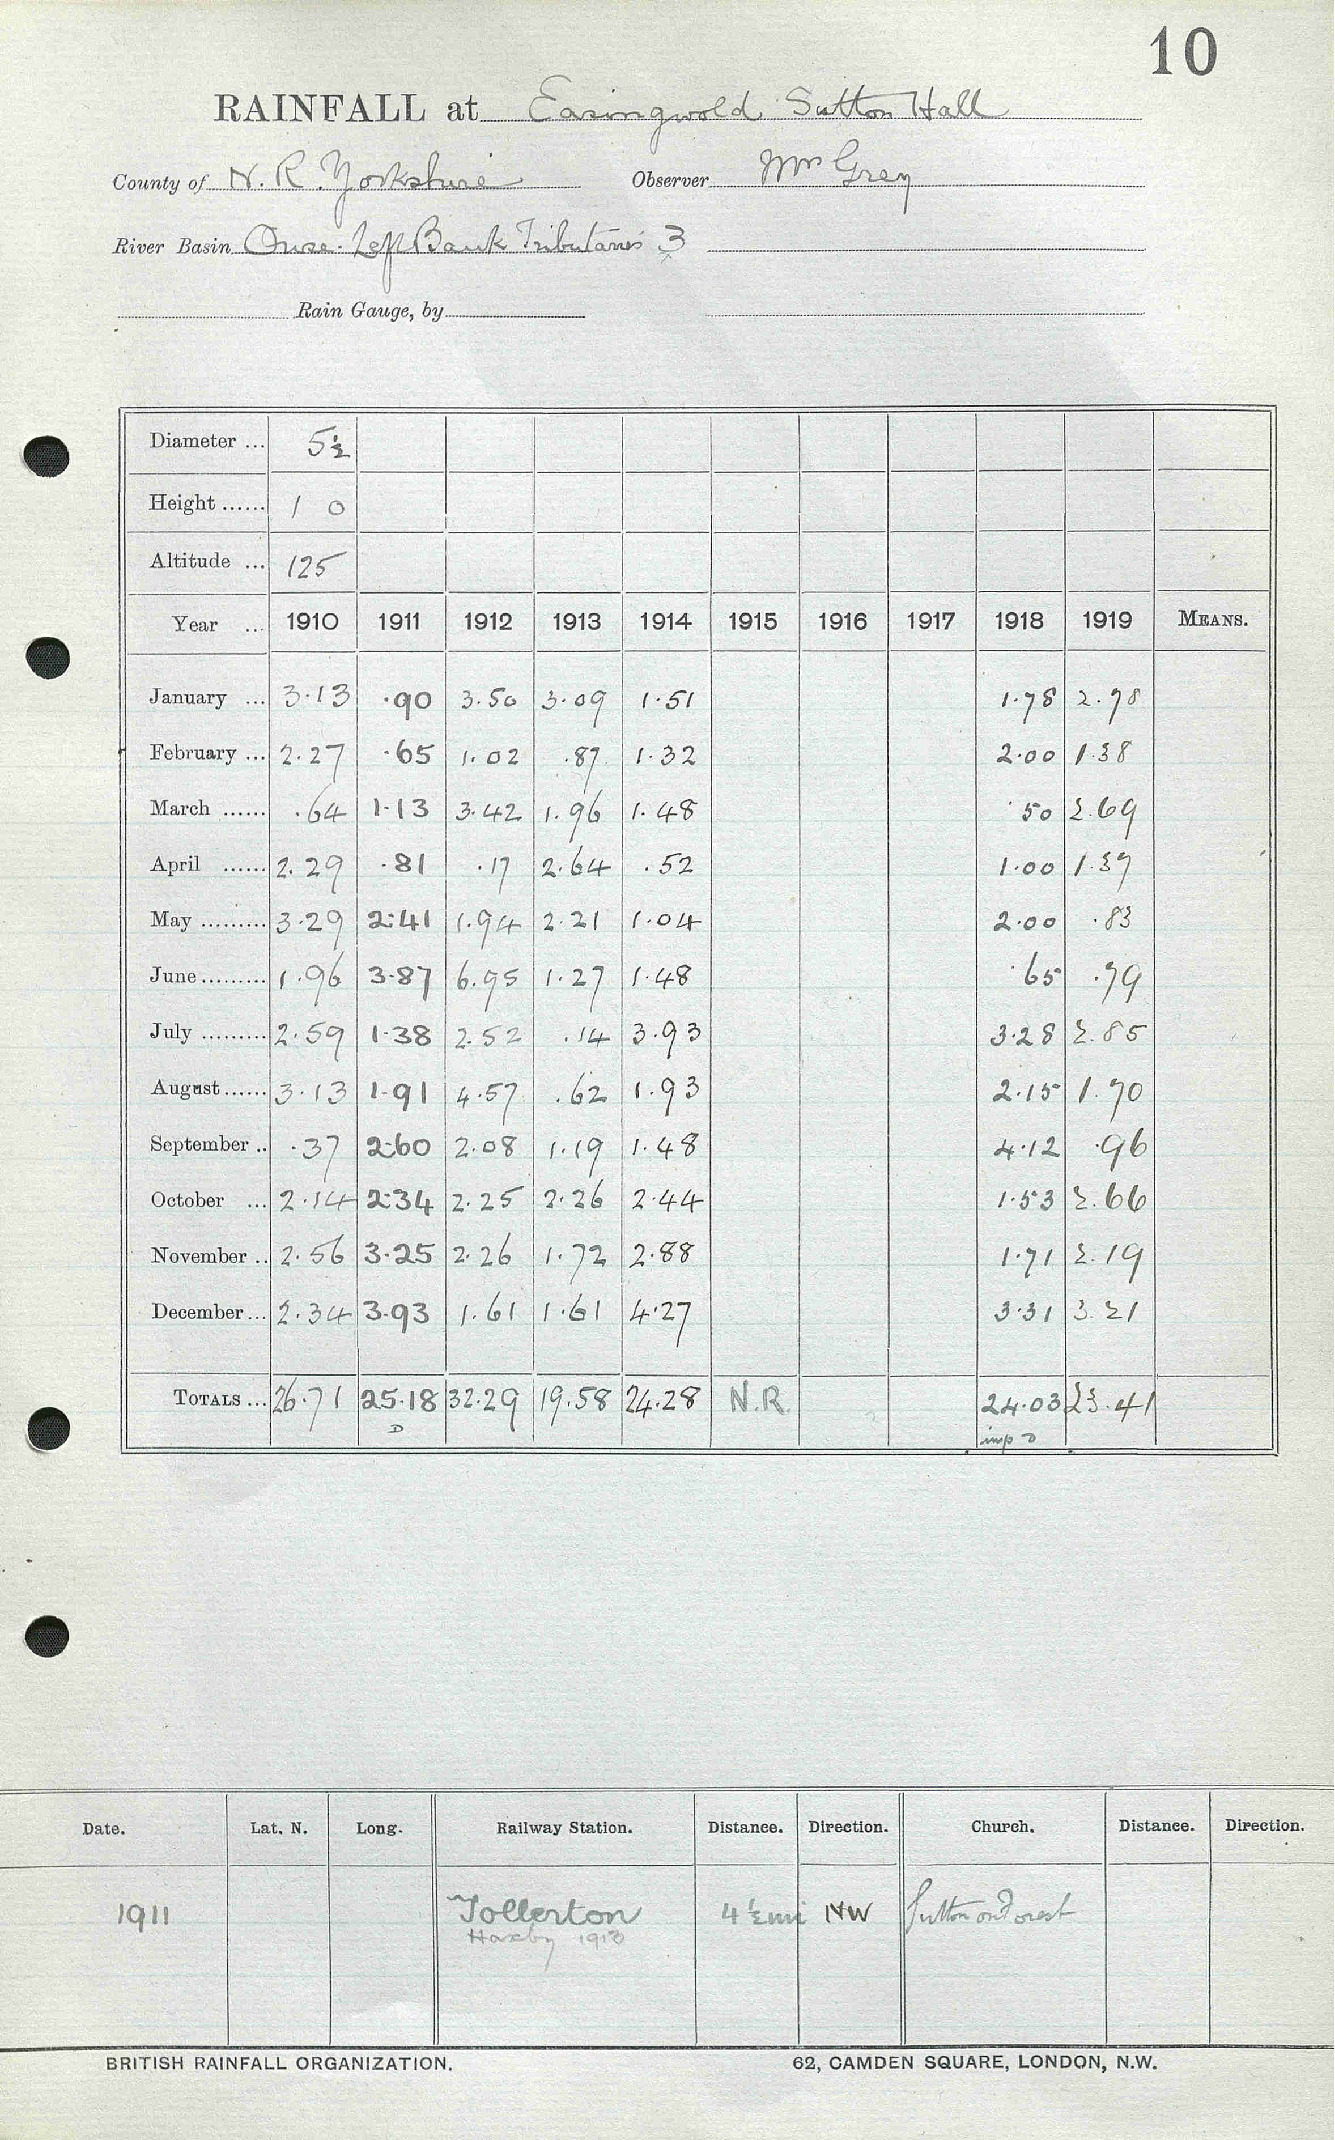 10
RAINFALL at Easingwold Sutton Hall
County of N. R. Yorkshire Observer Mrs Grey
River Basin Ouse. Left Bank Tributaries 3
Rain Gauge, by
Diameter ... 5½
Height ...... 1 0
Altitude ... 125
Year ... 1910 1911 1912 1913 1914 1915 1916 1917 1918 1919 MEANS.
January ... 3.13 .90 3.50 3.09 1.51 1.78 2.78
February ... 2.27 .65 1.02 .87 1.32 2.00 1.38
March ...... .64 1.13 3.42 1.96 1.48 .50 2.69
April ...... 2.29 .81 .17 2.64 .52 1.00 1.37
May ......... 3.29 2.41 1.94 2.21 1.04 2.00 .83
June ......... 1.96 3.87 6.95 1.27 1.48 .65 .79
July ......... 2.59 1.38 2.52 .14 3.93 3.28 2.85
August ...... 3.13 1.91 4.57 .62 1.93 2.15 1.70
September .. .37 2.60 2.08 1.19 1.48 4.12 .96
October ... 2.14 2.34 2.25 2.26 2.44 1.53 2.66
November .. 2.56 3.25 2.26 1.72 2.88 1.71 2.19
December ... 2.34 3.93 1.61 1.61 4.27 3.31 3.21
TOTALS ... 26.71 25.18 32.29 19.58 24.28 N.R. 24.03 23.41
D imp D
Date. Lat. N. Long. Railway Station. Distance. Direction. Church. Distance. Direction.
1911 Tollerton 4½mi NW Sutton on Forest
Haxby 1918
BRITISH RAINFALL ORGANIZATION. 62, CAMDEN SQUARE, LONDON, N.W.